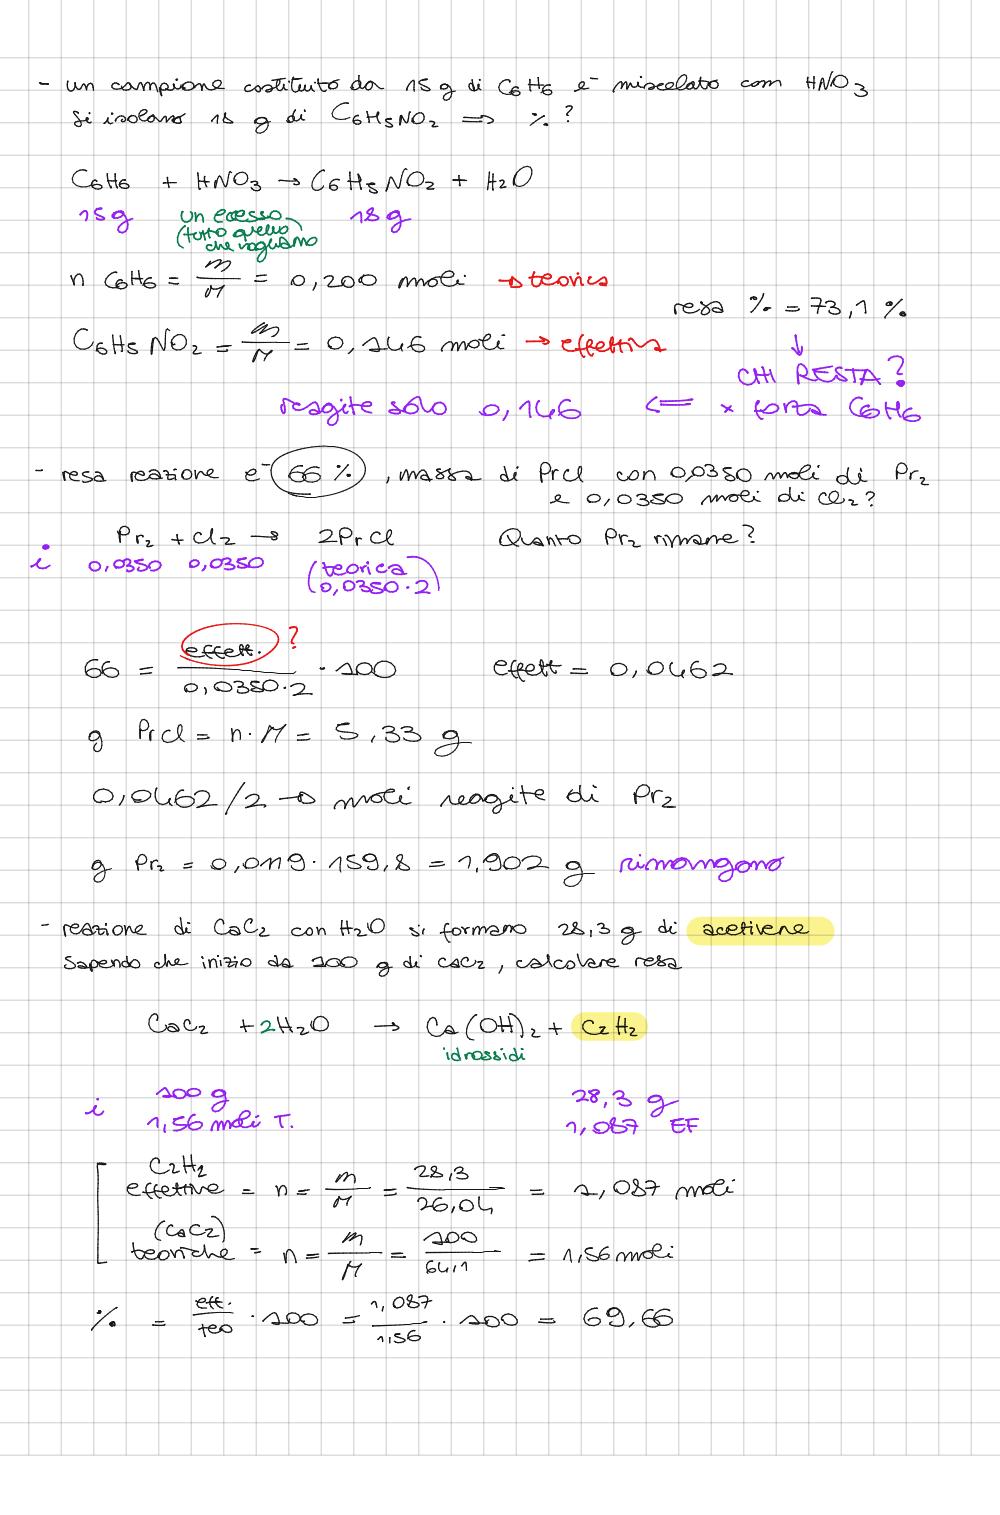 - un campione costituito da 15 g di C6H6 e' miscelato com HNO3
Si isolano 18 g di C6H5NO2 => % ?
C6H6 + HNO3 → C6H5NO2 + H2O
15g un ecesso 18 g
(tutto quello
che vogliamo
n C6H6 = m/M = 0,200 moli → teorica
resa % = 73,1 %
C6H5NO2 = m/M = 0,146 moli → effettiva
↓
CHI RESTA?
reagite solo 0,146 <= x forza C6H6
- resa reazione e' 66 %, massa di PrCl con 0,0350 moli di Pr2
e 0,0350 moli di Cl2?
Pr2 + Cl2 → 2PrCl Quanto Pr2 rimane?
i 0,0350 0,0350 (teorica
0,0350·2)
66 = effett. / 0,0350·2 · 100 effett = 0,0462
?
g PrCl = n·M = 5,33 g
0,0462/2 → moli reagite di Pr2
g Pr2 = 0,0119 · 159,8 = 1,902 g rimangono
- reazione di CaC2 con H2O si formano 28,3 g di acetilene
Sapendo che inizio da 100 g di CaC2, calcolare resa
CaC2 + 2H2O → Ca(OH)2 + C2H2
idrossidi
i 100 g 28,3 g
1,56 moli T. 1,087 EF
C2H2
effettive = n = m/M = 28,3/26,04 = 1,087 moli
(CaC2)
teoriche = n = m/M = 100/64,1 = 1,56 moli
% = eff./teo · 100 = 1,087/1,56 · 100 = 69,66